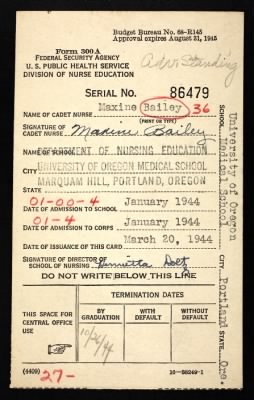 Budget Bureau No. 68-R145
Approval expires August 31, 1945
Form 300 A
FEDERAL SECURITY AGENCY
U. S. PUBLIC HEALTH SERVICE
DIVISION OF NURSE EDUCATION
Adv. Standing
SERIAL No. 86479
Maxine Bailey 36
NAME OF CADET NURSE
(PRINT OR TYPE)
SIGNATURE OF CADET NURSE Maxine Bailey
NAME OF SCHOOL
DEPARTMENT OF NURSING EDUCATION
CITY
UNIVERSITY OF OREGON MEDICAL SCHOOL
MARQUAM HILL, PORTLAND, OREGON
01-00-4 January 1944
DATE OF ADMISSION TO SCHOOL
01-4 January 1944
DATE OF ADMISSION TO CORPS
March 20, 1944
DATE OF ISSUANCE OF THIS CARD
SIGNATURE OF DIRECTOR OF SCHOOL OF NURSING Henrietta Doltz
DO NOT WRITE BELOW THIS LINE
THIS SPACE FOR CENTRAL OFFICE USE
TERMINATION DATES
BY GRADUATION
WITH DEFAULT
WITHOUT DEFAULT
10/26/44
(4409)
27-
16-38249-1
SCHOOL University of Oregon Medical School
CITY Portland
STATE Ore.